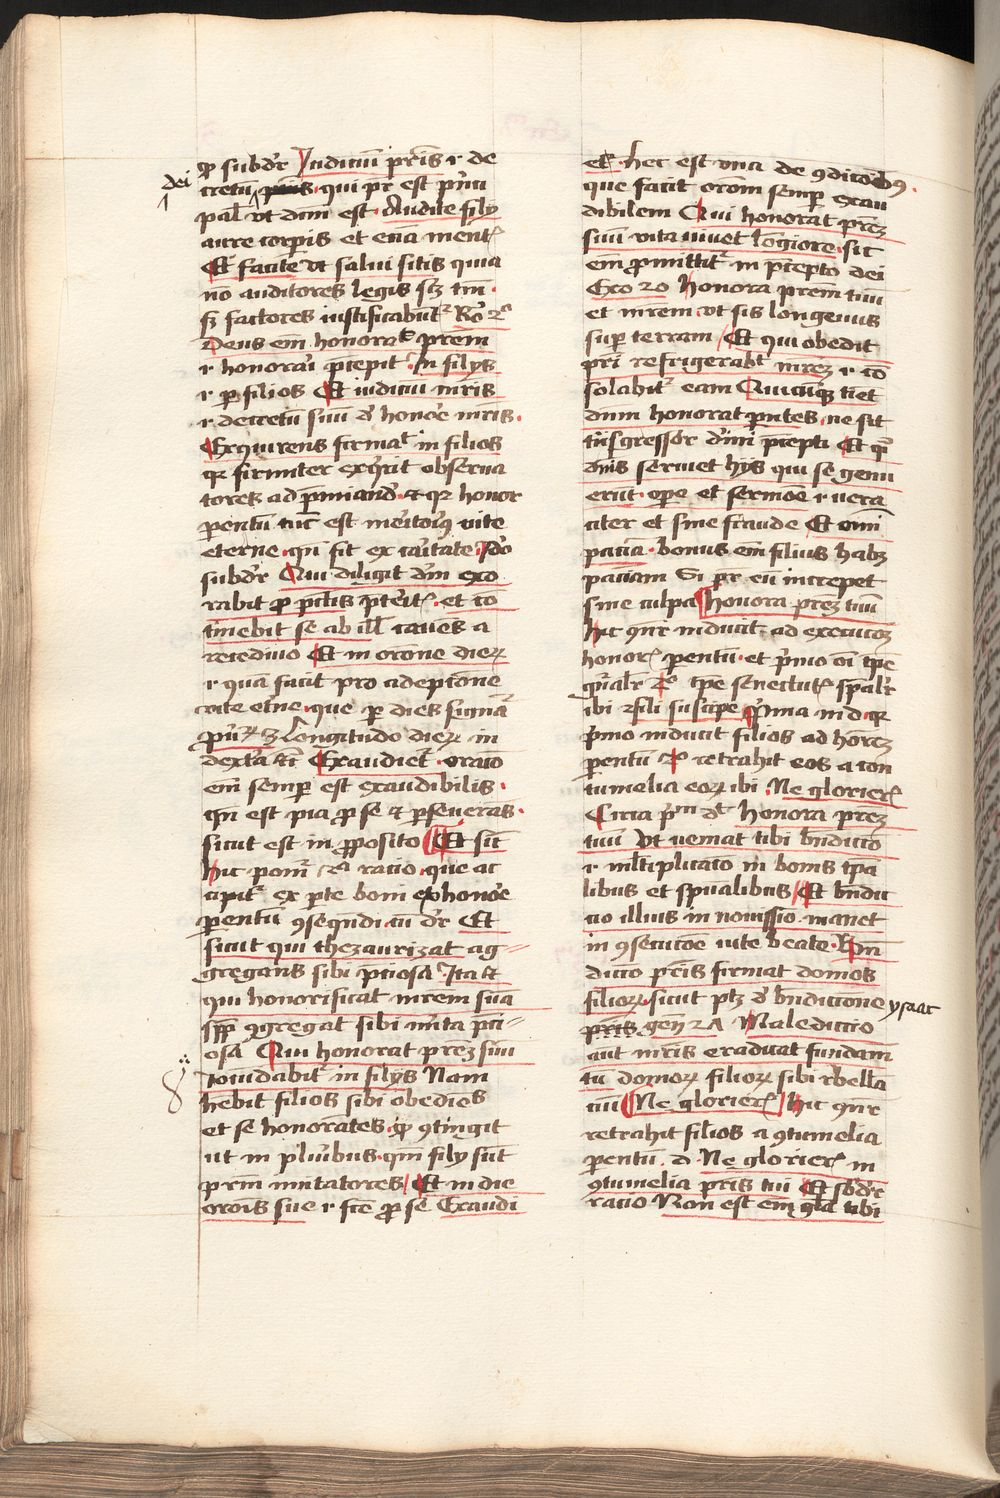 qꝫ subdr̄ Judiciū pr̄is ⁊ de
dei
cretū pr̄is qui pr̄ est prīci
pal̄ vt dm̄ est · Audite filij
aure corpīs et eciā ment̄
Et facite vt salui sitis quia
nō auditores legis sꝫ tm̄ ·
sꝫ factores iustificabūt᷑ Ro 2º
Deus em̄ honorat̄ prem̄
⁊ honorāi p̄cepit · In filijs
⁊ ꝓ filios Et iudiciū mr̄is
⁊ decretū suū d' honoē mr̄is ·
Exquirens firmat᷑ in filios
qꝫ firmiter exq̄rit obserua
tores ad p̄miand' · et qꝫ honor
parentū tūc est meritoriꝰ vite
eterne · qn̄ fit ex caritate · Ido
subdr̄ Qui diligit dm̄ exo
rabit ꝓ pctīs p̄terit̄ · et cō
tinebit se ab ill̄ caueß a
recidiuo Et in orōne dieꝝ
⁊ quā facit pro adepcione
vite et̄ne · que per dies signāt̄
Longitudo dieꝝ in
dext̄a &c̄ Exaudiet̄ · oracō
em̄ semp̄ est exaudibilis ·
qn̄ est pia ꝓ se et ꝑseuerās ·
sicut est in ꝓposito Et sic̄
hic ponit̄ 2ª racio · que ac
cipit᷑ ex ꝑte boni ex honoē
parentū ꝯseqndi cū dr̄ Et
sicut qui thezaurizat ag-
gregans sibi p̄ciosa Ita et
qui honorificat mrem suā
ꝯgregat sibi mlta p̄ci-
osa Qui honorat prēꝫ suū
Iocūdabit᷑ in filijs Nam
hēbit filios sibi obediēs
et se honorātes · qꝫ ꝯtingit
vt in pluribus · qn̄ filij sūt
prm̄ imitatores Et in die
orōnis sue ⁊ fcē ꝓ se Exaudi
et᷑ · hec est vna de ꝯdicōibꝰ ·
que facit orōm semp̄ exau
dibilem Qui honorat prēꝫ
suū vita viuet lōgiore · sic
em̄ ꝓmittit᷑ in p̄cepto dei
Exo 20 Honora prem̄ tuū
et mrem · vt sis longeuus
sup̄ terram Et qui obedit
pr̄i refrigerabt̄ mr̄eꝫ ⁊ cō
solabit᷑ eam Quicūqꝫ tiēt
dnm̄ honorat parētes · ne sit
tn̄sgressor diuini p̄cepti Et qͣ
dnīs seruiet hijs qui se genu
erūt · oꝑe et sermōe ⁊ vera
citer et sine fraude Et omī
paciēcia · bonus em̄ filius habꝫ
paciciam Si pr̄ eū increpet
sine culpa Honora preꝫ tuū
hic qn̄r inducit ad execucōꝫ
honor̄ parentū · et primo oī tp̄e
gn̄alr̄ 2º tp̄e senectut̄ sp̄alr̄
ibi · fili suscipe Prima in d · qꝫ
primo inducit filios ad honōreꝫ
parentū 2º retrahit eos a con
tumelia eoꝝ ibi · Ne glorier̄
Circa prīm dt̄ honora prēꝫ
tuū vt veniat tibi bn̄dictō
⁊ ml̄tiplicacō in bonis tpa
libus et spūalibus Et bn̄dic
cio illius in nouissio maneat
in ꝯsecucōe vite beate · Bene
diccio pr̄is firmat domos
filioꝝ · sicut ptꝫ d' bn̄dictione ysaac
pr̄is gen̄ 27 Maledictio
aūt mr̄is eradicat fundam
tū domoꝝ filioꝝ sibi rbellā
ciū Ne glorier̄ hic qn̄r
retrahit filios a ꝯtumelia
parentū · d · Ne glorier̄ in
ꝯtumelia pr̄is tui Et sbdr̄
racio Non est em̄ gl̄a tibi